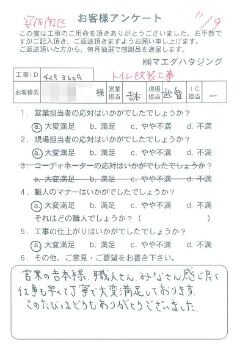 安佐南区
お客様アンケート
11/9
この度は工事のご用命を頂きありがとうございました。お手数ですがご記入頂き、ご返送頂きますようお願い申し上げます。
ご返送頂いた方から、毎月抽選で感謝品を進呈します。
㈱マエダハウジング
工事ID
トイレ改装工事
お客様名
様
営業担当
吉本
現場担当
IC担当
ー
1. 営業担当者の応対はいかがでしたでしょうか?
a. 大変満足 b. 満足 c. やや不満 d. 不満
2. 現場担当者の応対はいかがでしたでしょうか?
a. 大変満足 b. 満足 c. やや不満 d. 不満
3. コーディネーターの応対はいかがでしたでしょうか?
a. 大変満足 b. 満足 c. やや不満 d. 不満
4. 職人のマナーはいかがでしたでしょうか?
a. 大変満足 b. 満足 c. やや不満 d. 不満
それはどの職人でしょうか?( )
5. 工事の仕上がりはいかがでしたでしょうか?
a. 大変満足 b. 満足 c. やや不満 d. 不満
6. その他、ご意見・ご要望をお書き下さい。
営業の吉本様、職人さん、みなさん感じ良く
仕事も早くて丁寧で大変満足しております。
このたびはどうもありがとうございました。